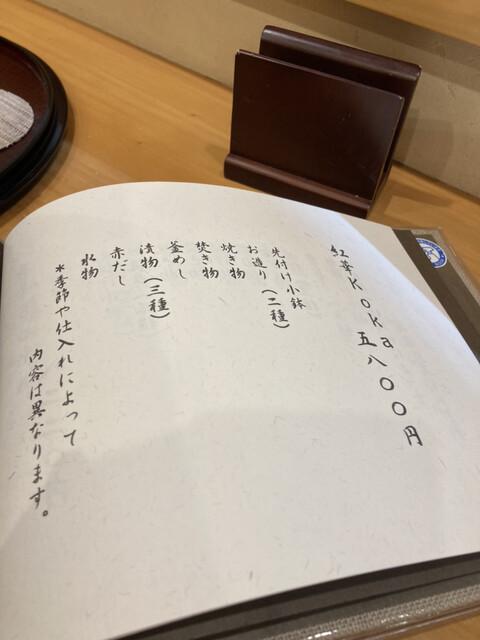 紅華Koka
五八〇〇円
先付け小鉢
お造り(二種)
焼き物
焚き物
釜めし
漬物(三種)
赤だし
水物
*季節や仕入れによって
内容は異なります。